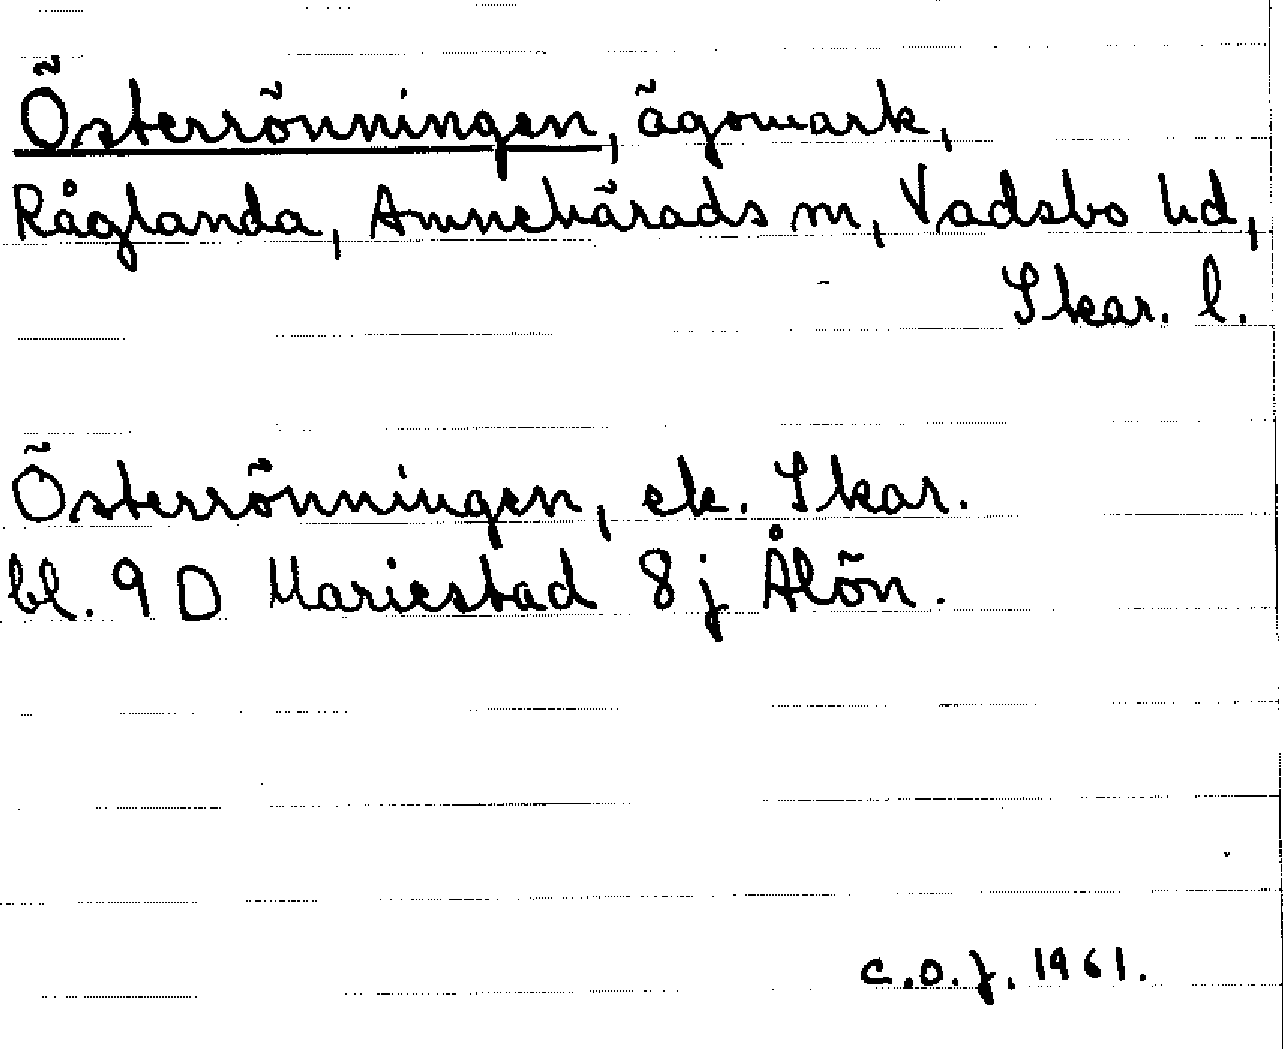 Österrönningen, ägomark,
Råglanda, Amnehärads sn, Vadsbo hd,
Skar. l.
Österrönningen, ek. Skar.
bl. 9 D Mariestad 8 j Ålön.
C.O.J. 1961.